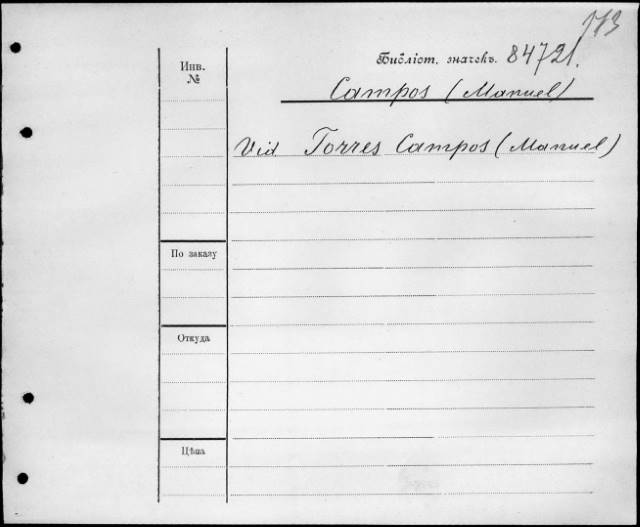 113
Библіот. значекъ. 84721.
Инв.
№
Campos (Manuel)
Vid Torres Campos (Manuel)
По заказу
Откуда
Цѣна